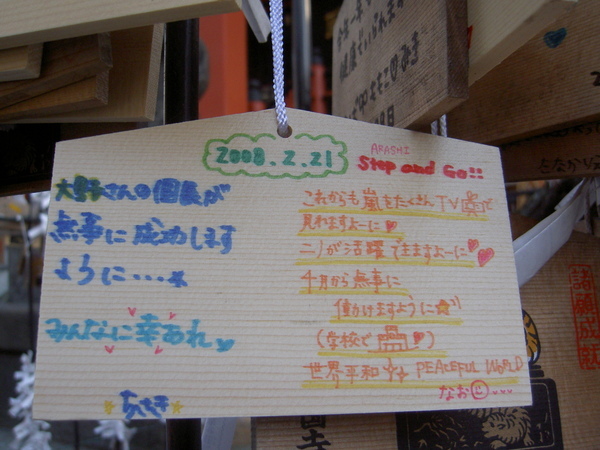 2008.2.21
ARASHI
Step and Go!!
大野さんの個展が
無事に成功します
ように・・・
みんなに幸あれ
これからも嵐をたくさんTVで
見れますよーに
二ノが活躍できますよーに
4月から無事に
働けますように
(学校で)
世界平和 PEACEFUL WORLD
なお
諸願成就